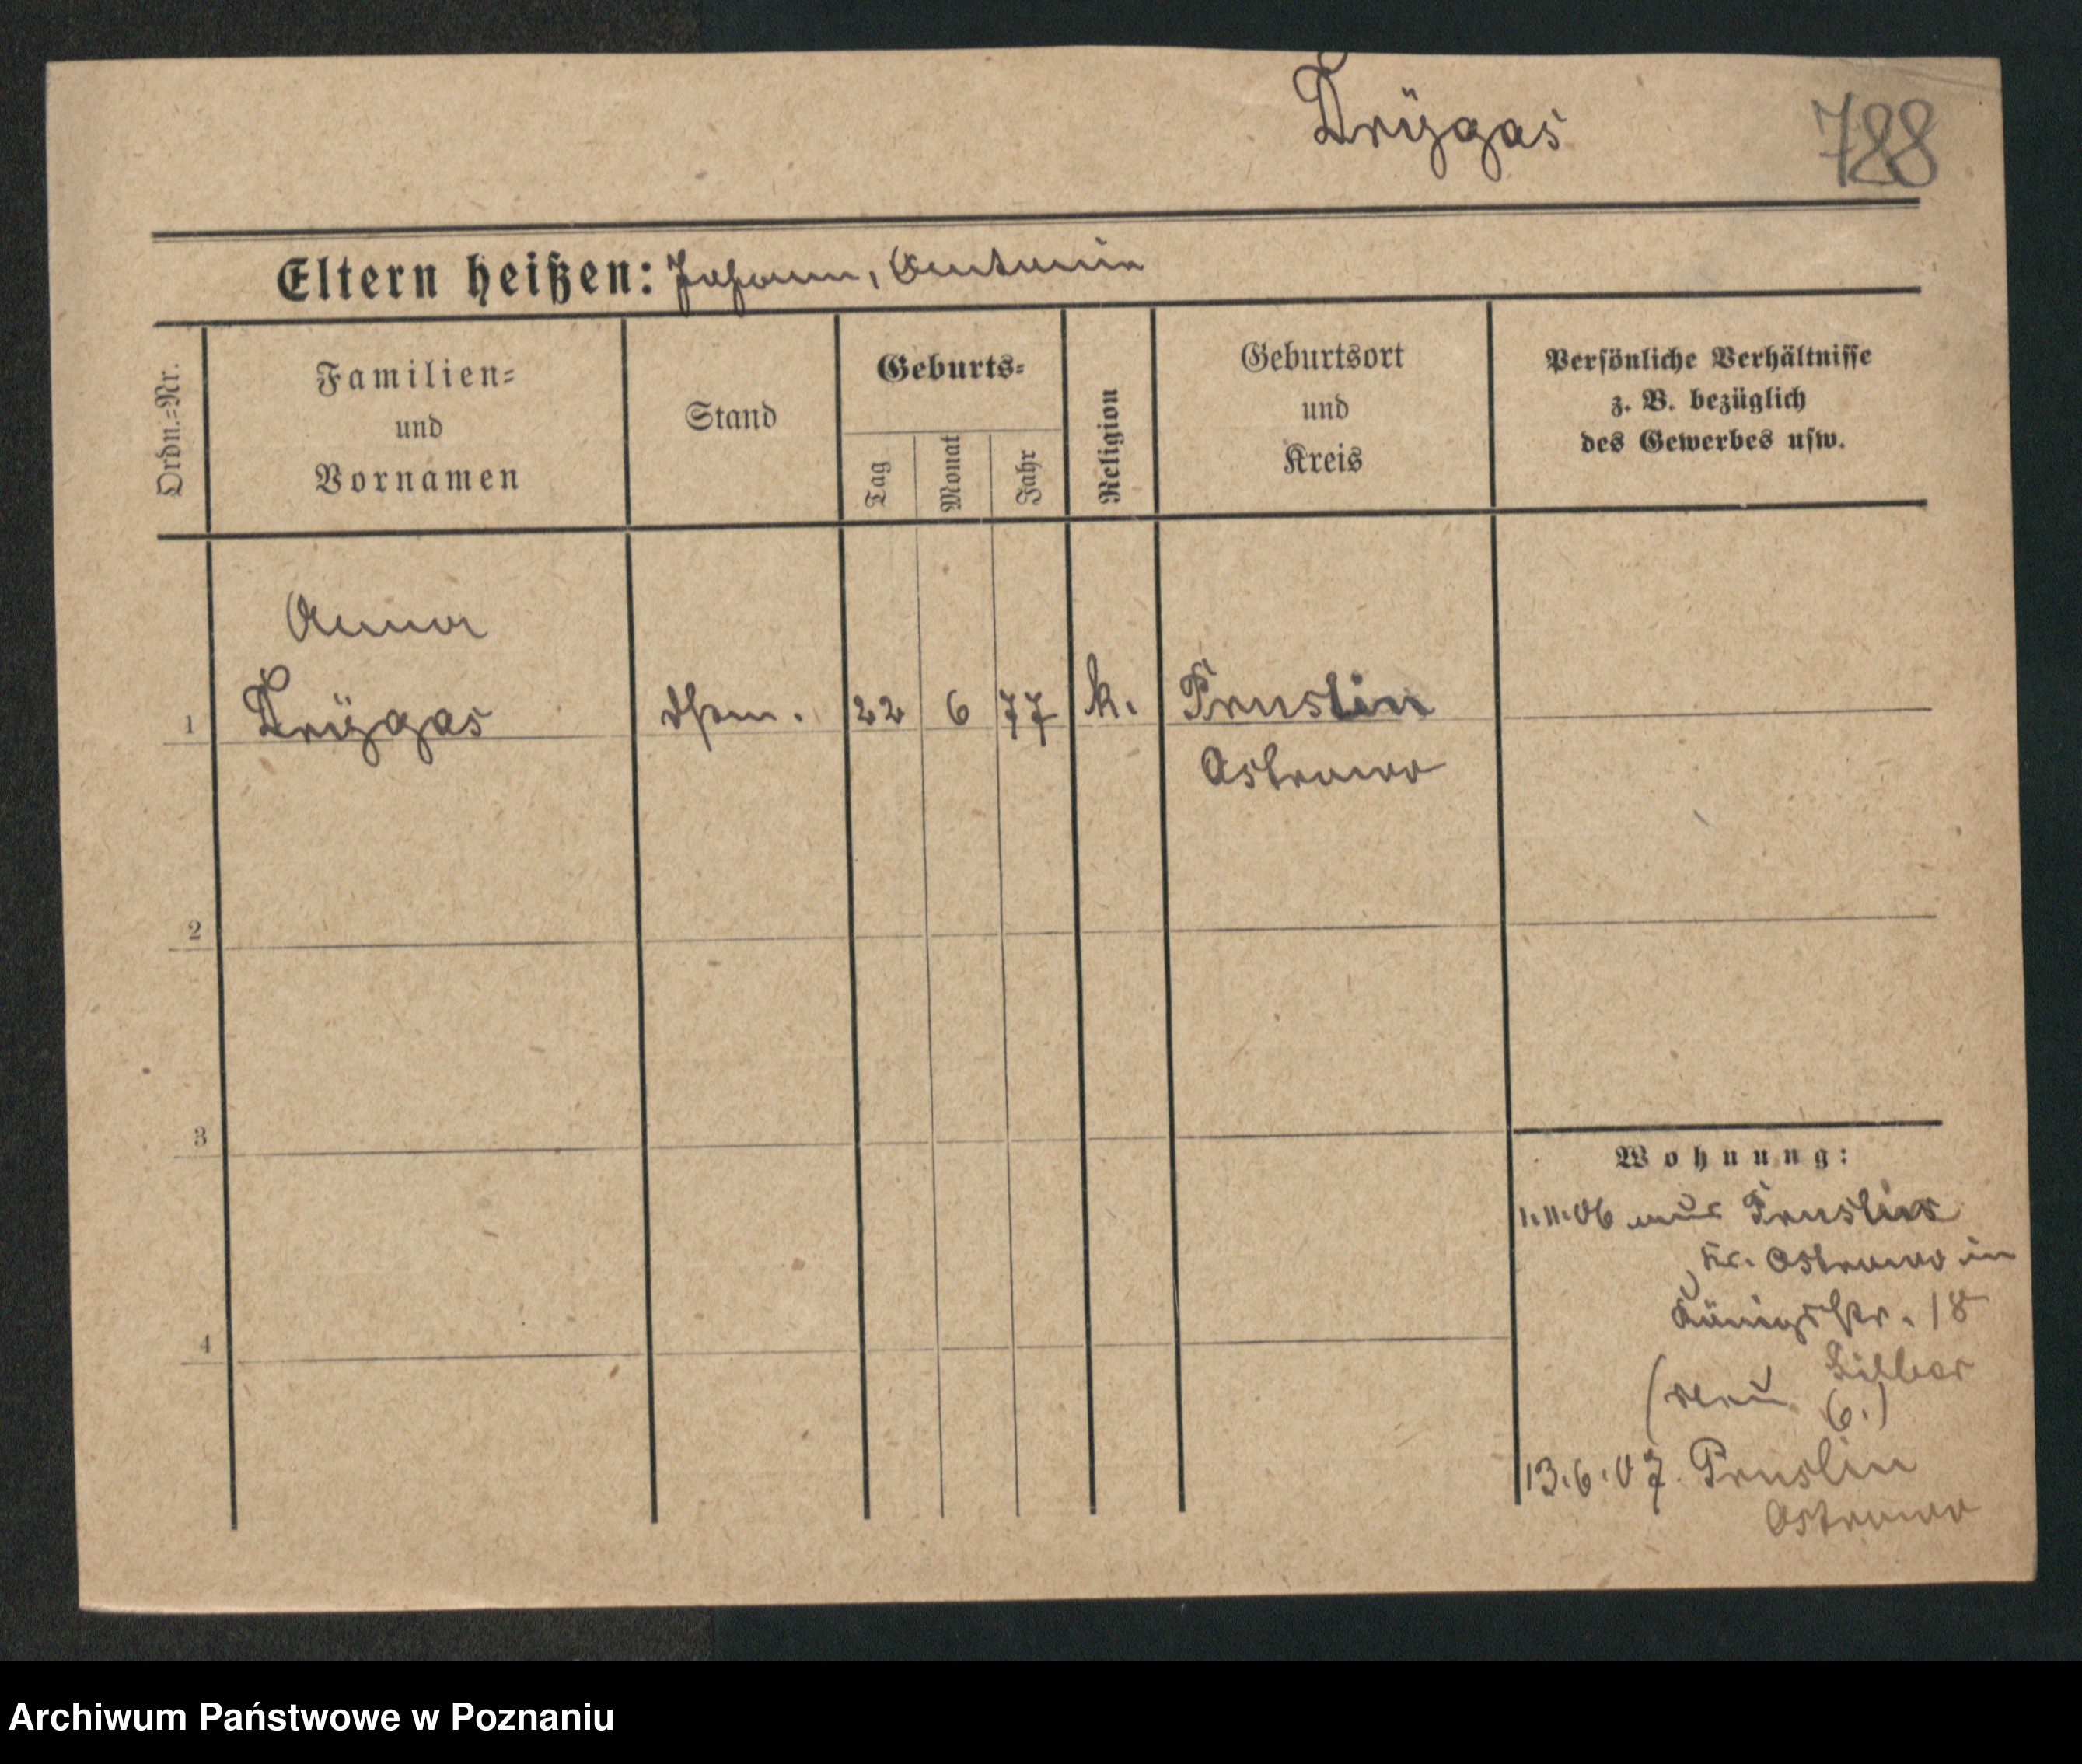 Drÿgas
788
Eltern heißen: Johann, Antonia
Ordn.=Nr.
Familien=
und
Vornamen
Stand
Geburts=
Tag
Monat
Jahr
Religion
Geburtsort
und
Kreis
Persönliche Verhältnisse
z. B. bezüglich
des Gewerbes usw.
Anna
1 Drÿgas 22 6 77 k. Pruslin
Ostrowo
2
3
4
Wohnung:
1.11.06 aus Pruslin
Kr. Ostrowo in
Königstr. 18
6.)
13.6.07. Pruslin
Ostrowo
Archiwum Państwowe w Poznaniu